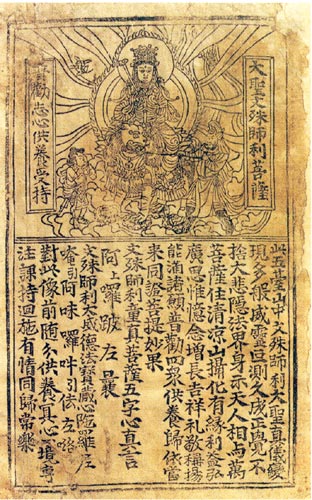 大聖文殊師利菩薩
普勸志心供養受持
此五臺山中文殊師利大聖真儀變
現多般威靈叵測久成正覺不
捨大悲隱法界身示天人相與萬
菩薩住清涼山攝化有緣利益弘
廣思惟憶念增長吉祥禮敬稱揚
能滿諸願普勸四眾供養歸依當
來同證菩提妙果
文殊師利童真菩薩五字心真言
阿上囉跛左曩
文殊師利大威德法寶藏心陀羅尼
唵引阿味囉吽引佉左洛
對此像前隨分供養冥心一境專
注課持迴施有情同歸常樂